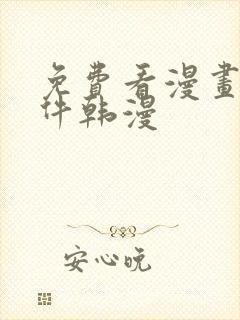 免費看漫畫
件韩漫
安心晥